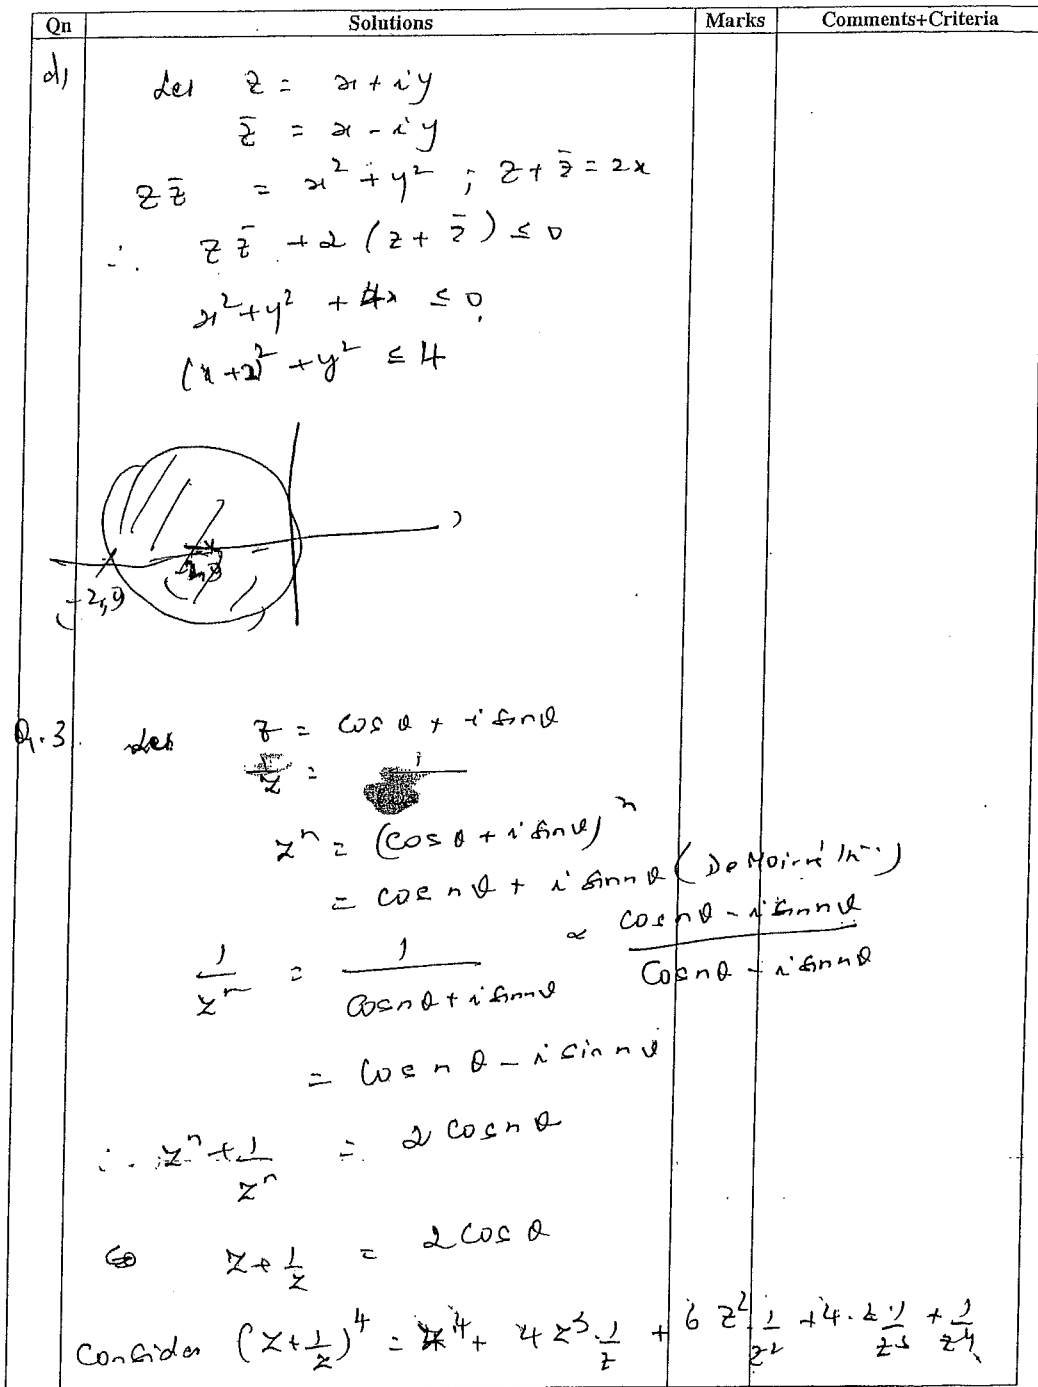 Qn Solutions Marks Comments+Criteria
d) Let z = x + iy
z̄ = x - iy
z z̄ = x² + y² ; z + z̄ = 2x
∴ z z̄ + 2 (z + z̄) ≤ 0
x² + y² + 4x ≤ 0
(x + 2)² + y² ≤ 4
Q.3. Let z = cos θ + i sin θ
1/z =
zⁿ = (cos θ + i sin θ)ⁿ
= cos nθ + i sin nθ (De Moivre' thm.)
1/zⁿ = 1/(cos nθ + i sin nθ) × (cos nθ - i sin nθ)/(cos nθ - i sin nθ)
= cos nθ - i sin nθ
∴ zⁿ + 1/zⁿ = 2 cos nθ
z + 1/z = 2 cos θ
Consider (z + 1/z)⁴ = z⁴ + 4 z³ · 1/z + 6 z² · 1/z² + 4 · z · 1/z³ + 1/z⁴